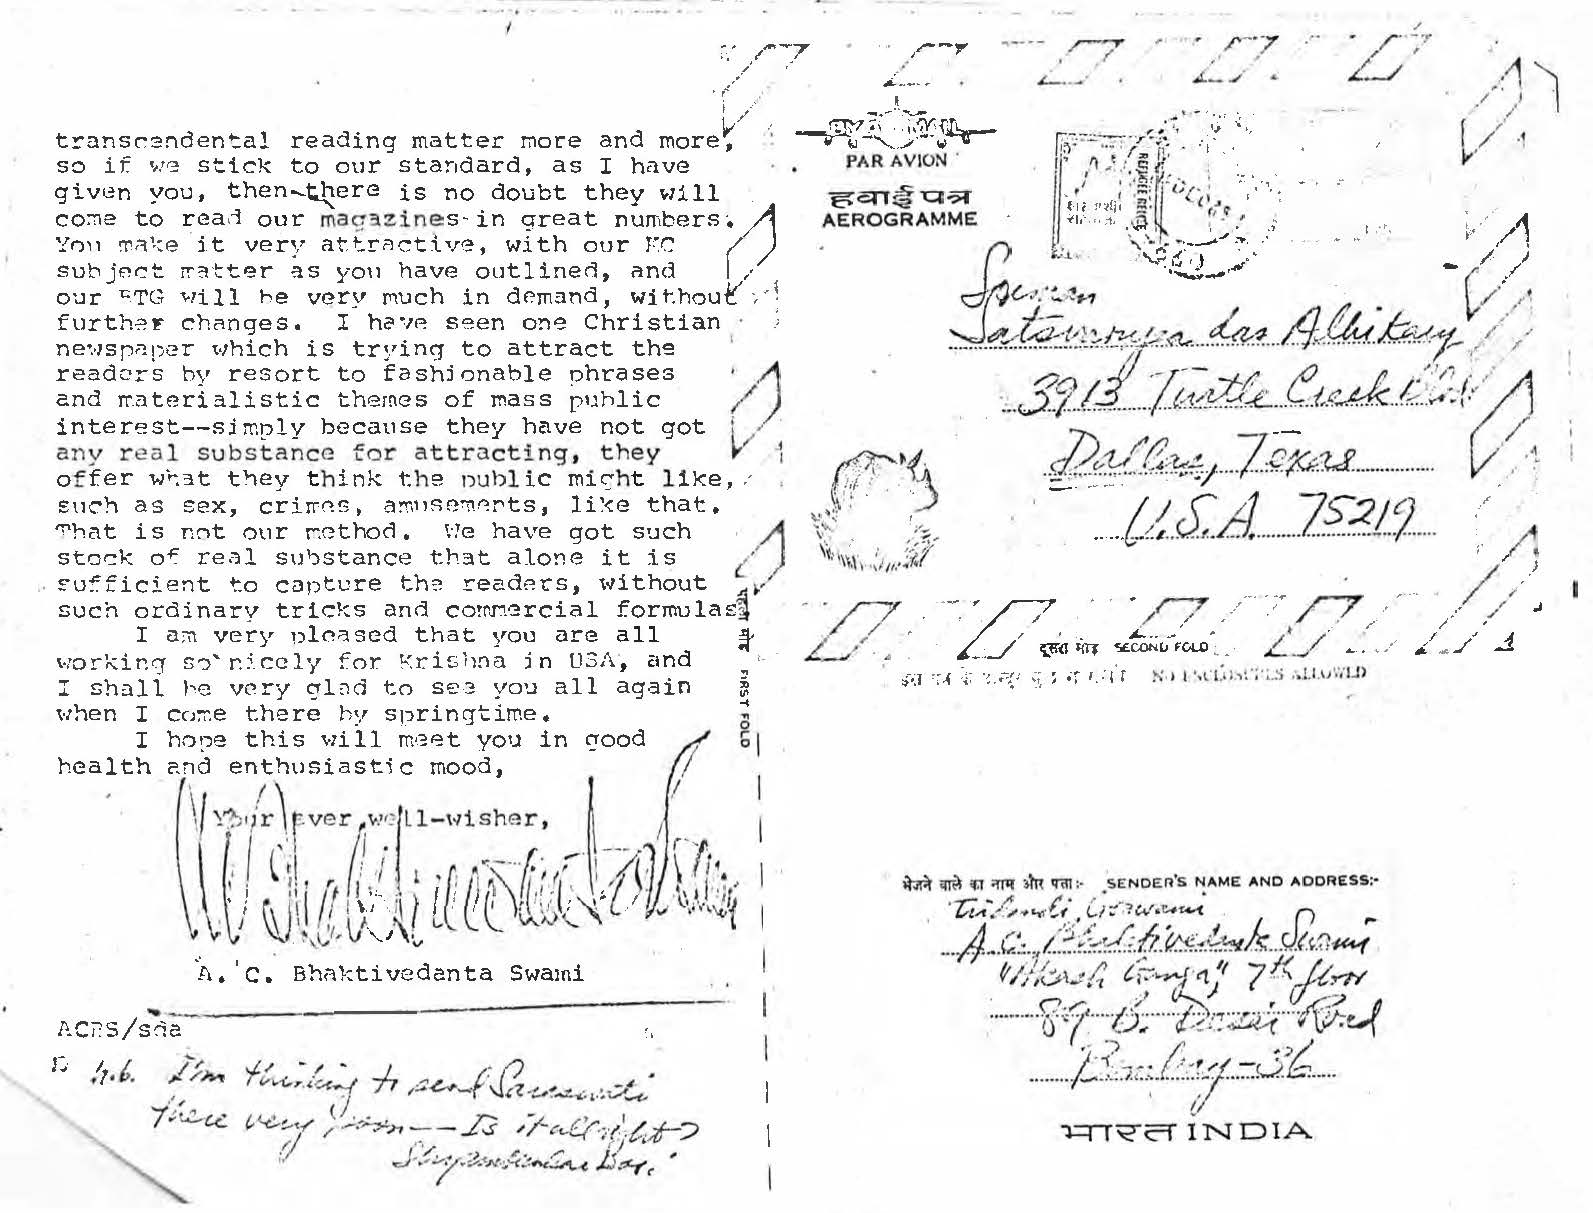 transcendental reading matter more and more,
so if we stick to our standard, as I have
given you, then there is no doubt they will
come to read our magazines in great numbers.
You make it very attractive, with our KC
subject matter as you have outlined, and
our BTG will be very much in demand, without
further changes. I have seen one Christian
newspaper which is trying to attract the
readers by resort to fashionable phrases
and materialistic themes of mass public
interest--simply because they have not got
any real substance for attracting, they
offer what they think the public might like,
such as sex, crimes, amusements, like that.
That is not our method. We have got such
stock of real substance that alone it is
sufficient to capture the readers, without
such ordinary tricks and commercial formulas
I am very pleased that you are all
working so nicely for Krishna in USA, and
I shall be very glad to see you all again
when I come there by springtime.
I hope this will meet you in good
health and enthusiastic mood,
Your ever well-wisher,
A. C. Bhaktivedanta Swami
ACBS/sda
n.b. I'm thinking to send Saraswati
there very soon—Is it allright?
पहला मोड़ FIRST FOLD
BY AIR MAIL
PAR AVION
हवाई पत्र
AEROGRAMME
REFUGEE RELIEF
Sriman
Satsvarupa das Adhikary
3913 Turtle Creek Blvd
Dallas, Texas
U.S.A. 75219
दूसरा मोड़ SECOND FOLD
NO ENCLOSURES ALLOWED
भेजने वाले का नाम और पता:- SENDER'S NAME AND ADDRESS:-
Tridandi Goswami
A.C. Bhaktivedanta Swami
"Akash Ganga", 7th floor
89 B. Desai Road
Bombay-36
भारत INDIA